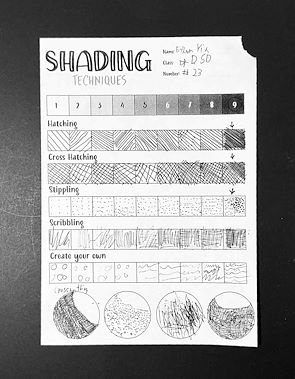 SHADING
TECHNIQUES
Name
Class D5D
Number # 23
1 2 3 4 5 6 7 8 9
Hatching
Cross Hatching
Stippling
Scribbling
Create your own